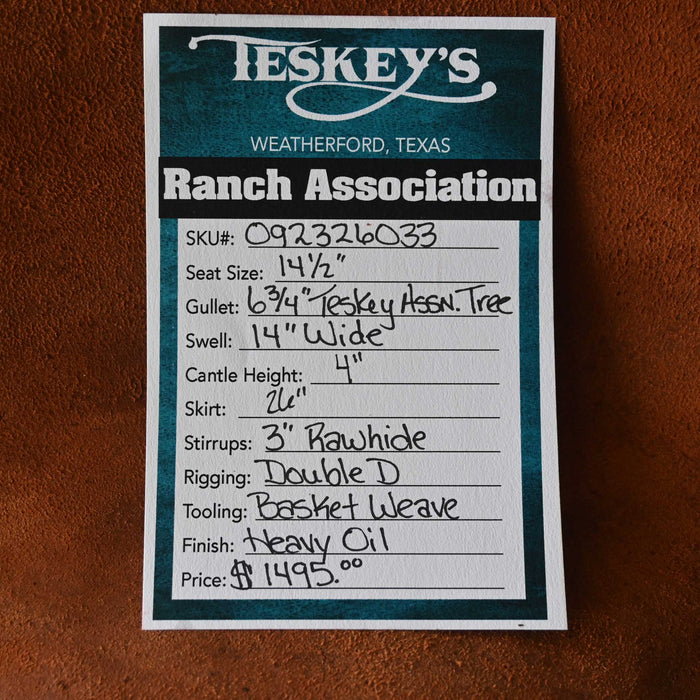 TESKEY'S
WEATHERFORD, TEXAS
Ranch Association
SKU#: 092326033
Seat Size: 14½"
Gullet: 6¾" Teskey Assn. Tree
Swell: 14" Wide
Cantle Height: 4"
Skirt: 26"
Stirrups: 3" Rawhide
Rigging: Double D
Tooling: Basket Weave
Finish: Heavy Oil
Price: $1495.00